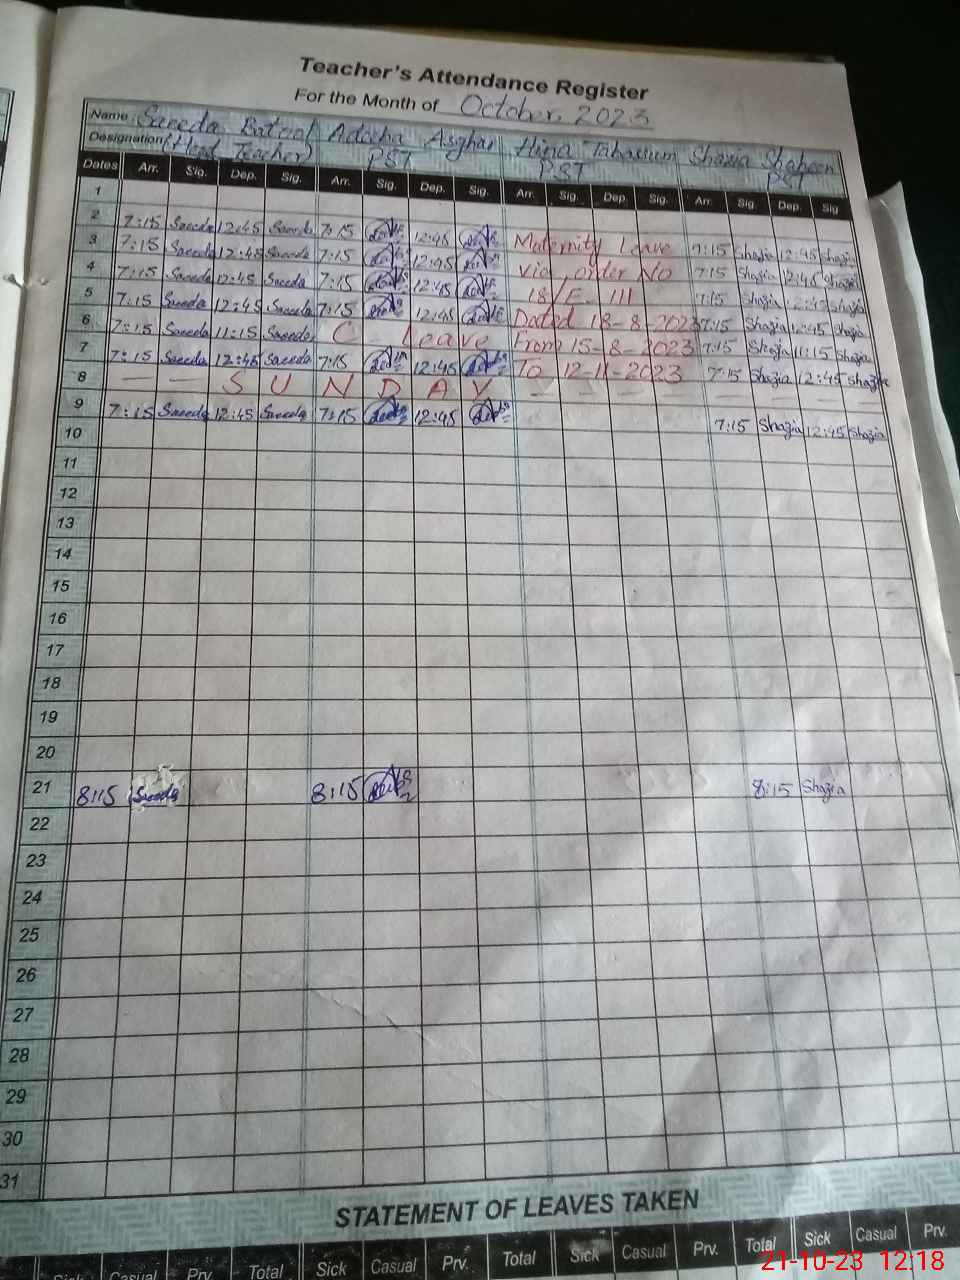 Teacher's Attendance Register
For the Month of October, 2023
Name Saeeda Batool Adeeba Asghar Hina Tabassum Shazia Shaheen
Designation (Head Teacher) PST PST PST
Dates Arr. Sig. Dep. Sig. Arr. Sig. Dep. Sig. Arr. Sig. Dep. Sig. Arr Sig. Dep. Sig
1
2 7:15 Saeeda 12:45 Saeeda 7:15 12:45 Maternity Leave 7:15 Shazia 12:45 Shazia
3 7:15 Saeeda 12:45 Saeeda 7:15 12:45 via order No 7:15 Shazia 12:45 Shazia
4 7:15 Saeeda 12:45 Saeeda 7:15 12:45 18/E-III 7:15 Shazia 12:45 Shazia
5 7:15 Saeeda 12:45 Saeeda 7:15 12:45 Dated 18-8-2023 7:15 Shazia 12:45 Shazia
6 7:15 Saeeda 11:15 Saeeda C. Leave From 15-8-2023 7:15 Shazia 11:15 Shazia
7 7:15 Saeeda 12:45 Saeeda 7:15 12:45 To 12-11-2023 7:15 Shazia 12:45 Shazia
8 — — S U N D A Y — — — — — — — —
9 7:15 Saeeda 12:45 Saeeda 7:15 12:45 7:15 Shazia 12:45 Shazia
10
11
12
13
14
15
16
17
18
19
20
21 8:15 Saeeda 8:15 8:15 Shazia
22
23
24
25
26
27
28
29
30
31
STATEMENT OF LEAVES TAKEN
Sick Casual Prv. Total Sick Casual Prv. Total Sick Casual Prv. Total Sick Casual Prv.
21-10-23 12:18